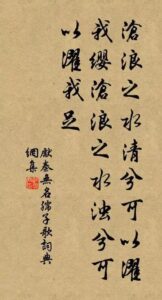 滄浪之水清兮可以濯
我纓滄浪之水浊兮可
以濯我足
獻秦無名孺子歌詞典
網集